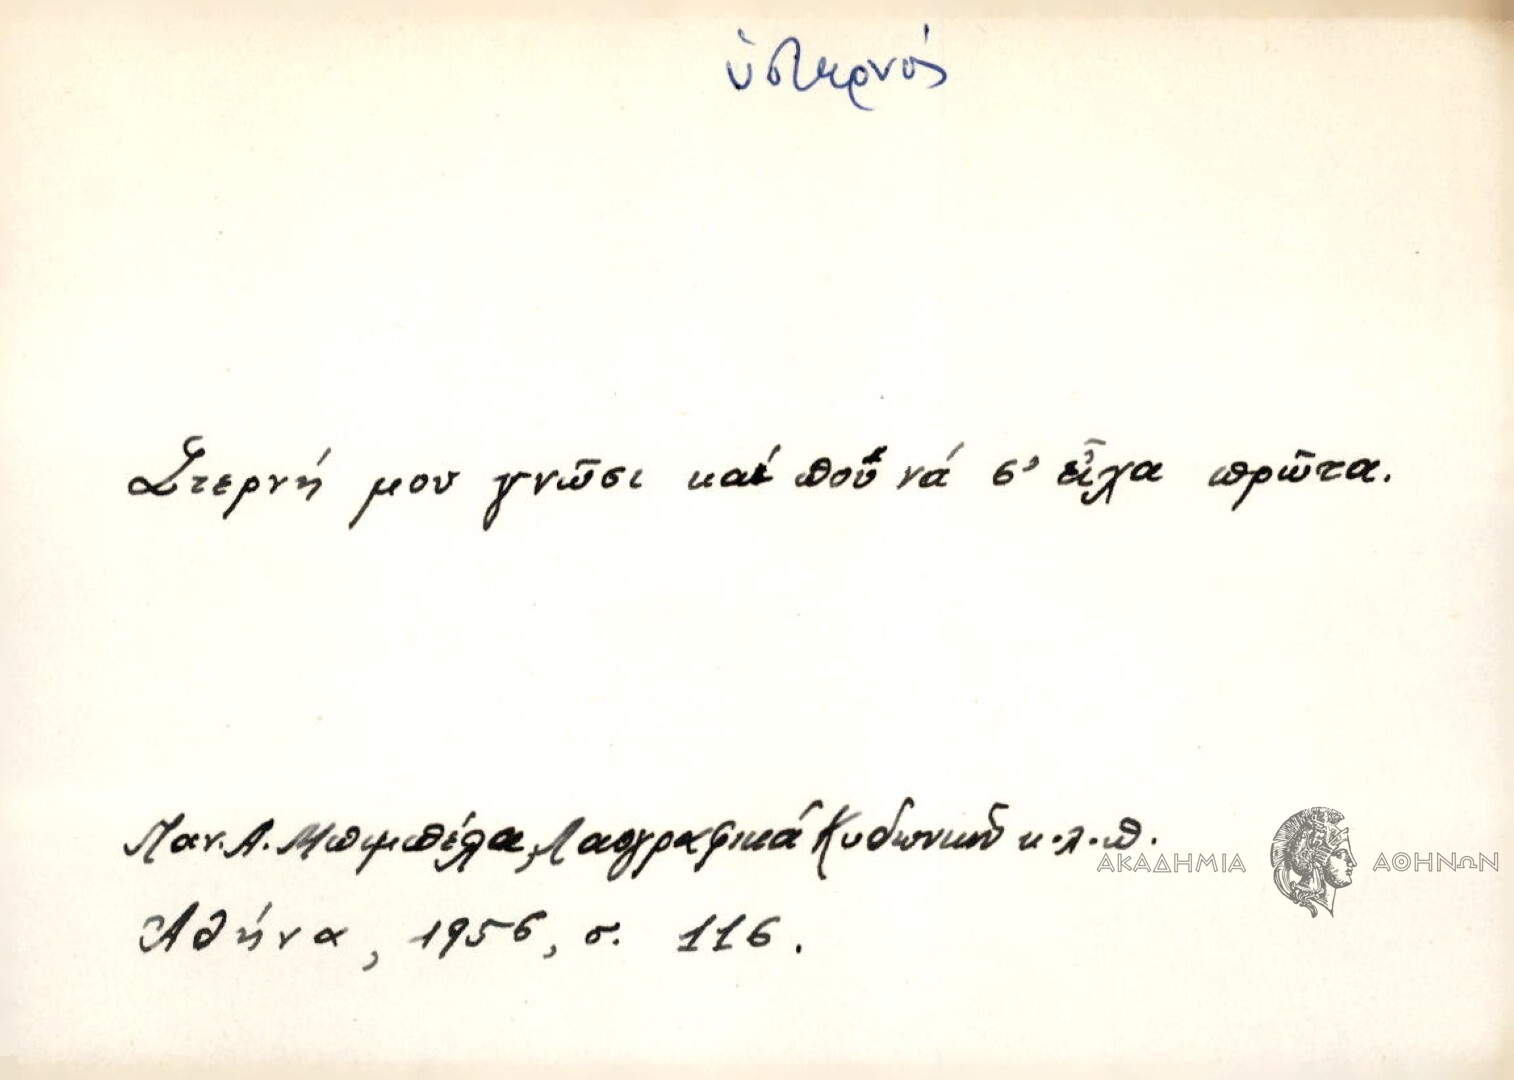 ὑστερνός
Στερνή μου γνῶσι καί ποῦ νά σ' εἶχα πρῶτα.
Παν. Α. Μπιμπέλα, Λαογραφικά Κυδωνιῶν κ.λ.π.
ΑΚΑΔΗΜΙΑ ΑΘΗΝΩΝ
Ἀθήνα, 1956, σ. 116.